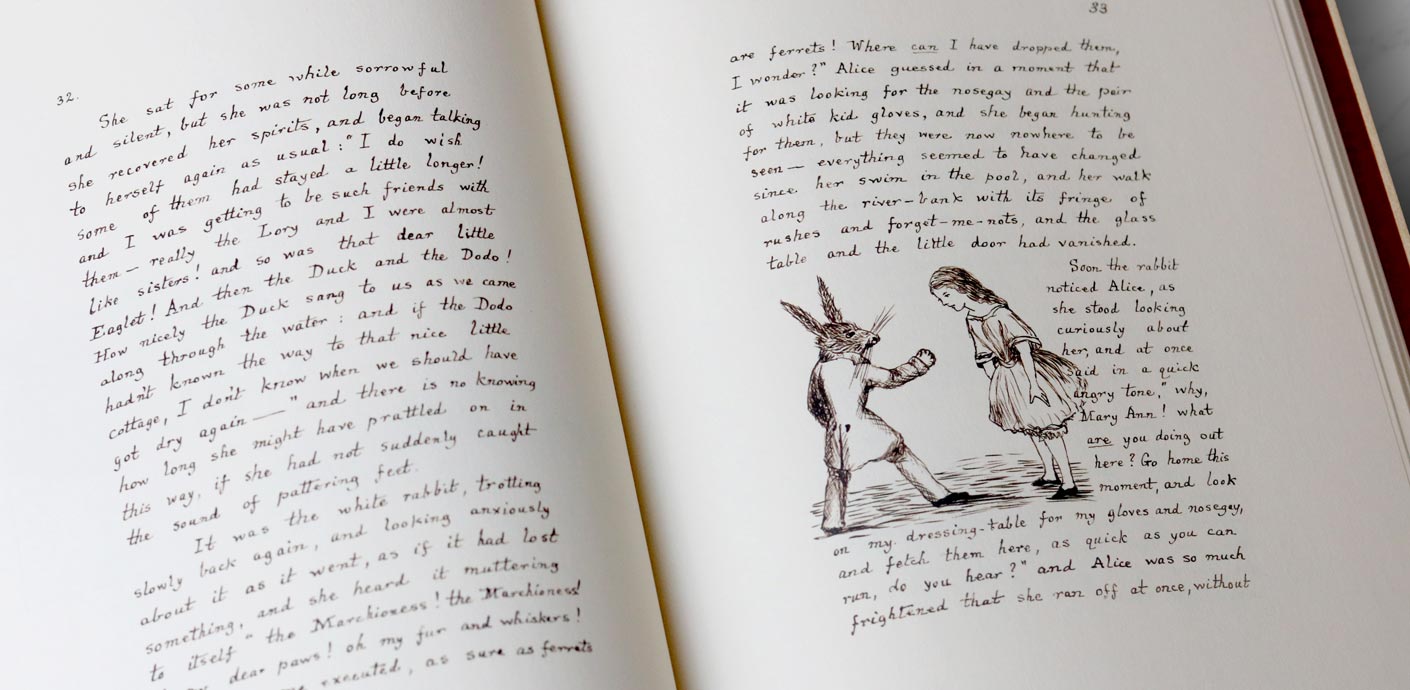 32.
She sat for some while sorrowful
and silent, but she was not long before
she recovered her spirits, and began talking
to herself again as usual: "I do wish
some of them had stayed a little longer!
and I was getting to be such friends with
them — really the Lory and I were almost
like sisters! and so was that dear little
Eaglet! And then the Duck and the Dodo!
How nicely the Duck sang to us as we came
along through the water: and if the Dodo
hadn't known the way to that nice little
cottage, I don't know when we should have
got dry again —" and there is no knowing
how long she might have prattled on in
this way, if she had not suddenly caught
the sound of pattering feet.
It was the white rabbit, trotting
slowly back again, and looking anxiously
about it as it went, as if it had lost
something, and she heard it muttering
to itself "the Marchioness! the Marchioness!
dear paws! oh my fur and whiskers!
executed, as sure as ferrets
33
are ferrets! Where can I have dropped them,
I wonder?" Alice guessed in a moment that
it was looking for the nosegay and the pair
of white kid gloves, and she began hunting
for them, but they were now nowhere to be
seen — everything seemed to have changed
since her swim in the pool, and her walk
along the river-bank with its fringe of
rushes and forget-me-nots, and the glass
table and the little door had vanished.
Soon the rabbit
noticed Alice, as
she stood looking
curiously about
her, and at once
said in a quick
angry tone, "why,
Mary Ann! what
are you doing out
here? Go home this
moment, and look
on my dressing-table for my gloves and nosegay,
and fetch them here, as quick as you can
run, do you hear?" and Alice was so much
frightened that she ran off at once, without